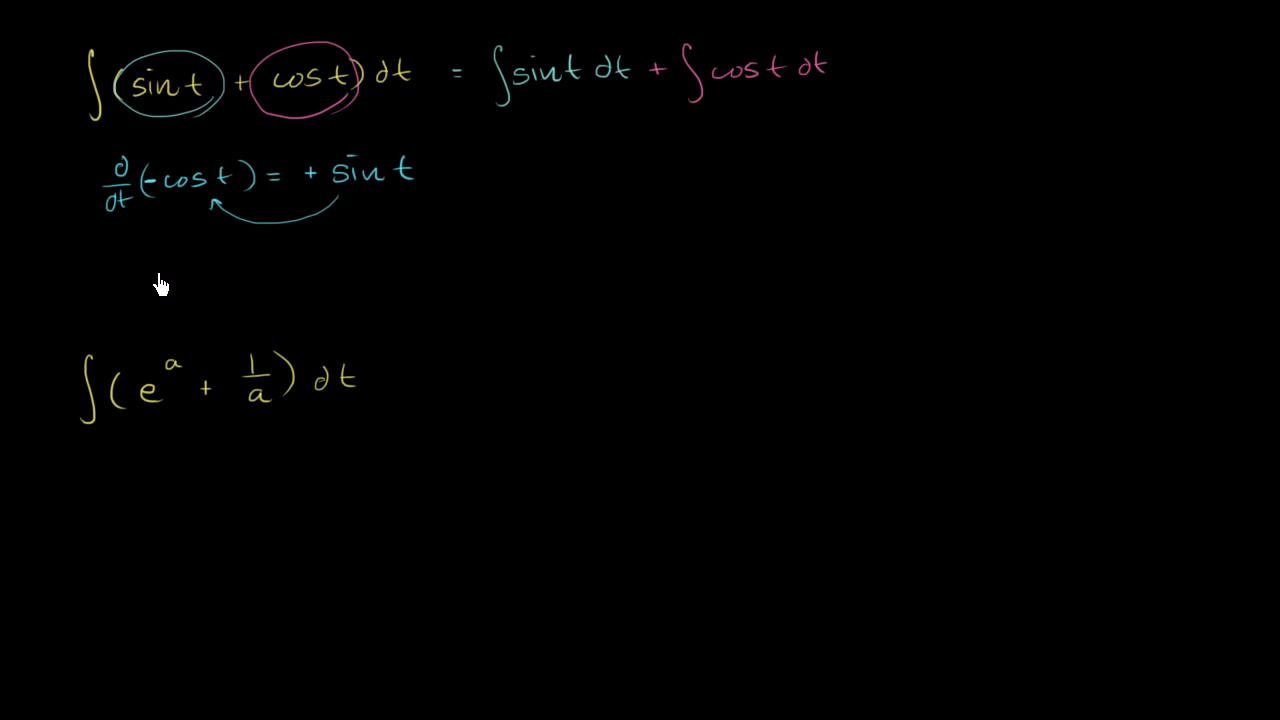 ∫(sin t + cos t) dt = ∫sin t dt + ∫cos t dt
d/dt(-cos t) = + sin t
∫(e^a + 1/a) dt